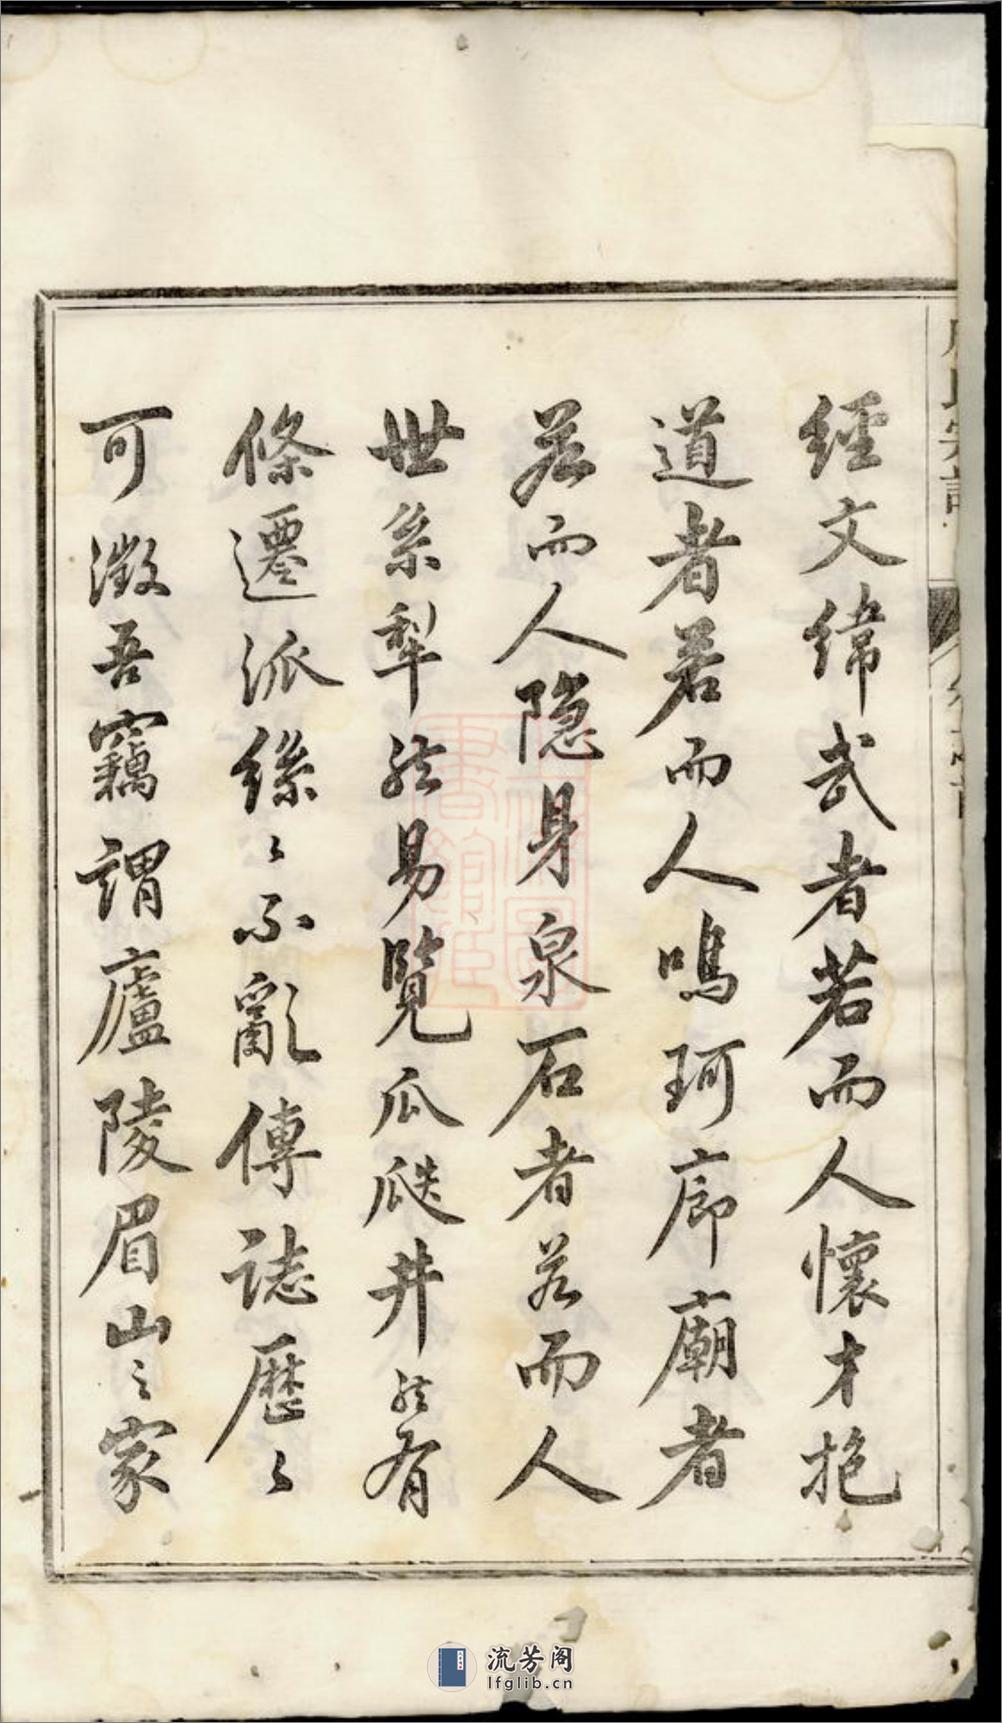 經文緯武者若而人懷才抱
道者若而人鳴珂廊廟者
若而人隐身泉石者若而人
世系犁然易覽瓜瓞井然有
條遷派繇〻不亂傳誌歷〻
可徵吾竊謂廬陵眉山之家
流芳阁
lfglib.cn